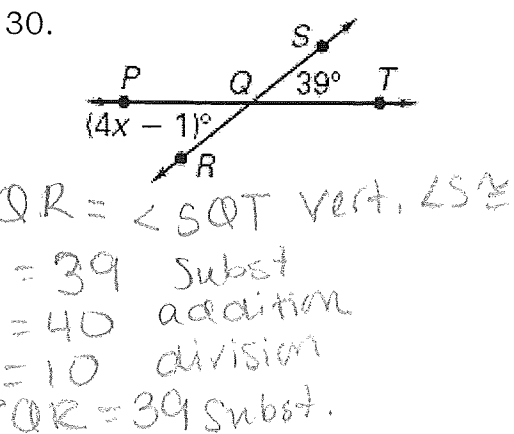 30.
S
P Q 39° T
(4x − 1)°
R
QR = <SQT vert. <S ≅
= 39 Subst
= 40 addition
= 10 division
QR = 39 Subst.